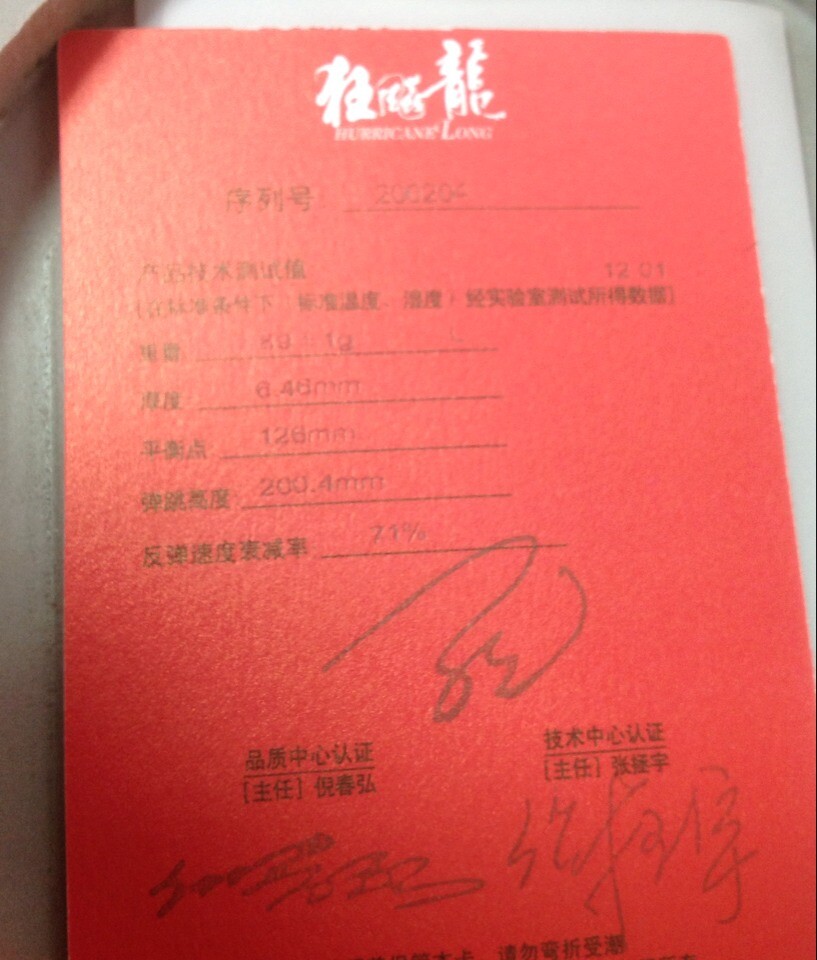 狂飚龍
HURRICANE LONG
序列号 200204
产品技术测试值 12 01
(在标准条件下 标准温度 湿度) 经实验室测试所得数据)
重量
厚度 6.46mm
平衡点 126mm
弹跳高度 200.4mm
反弹速度衰减率 71%
品质中心认证
[主任] 倪春弘
技术中心认证
[主任] 张拯宇
本卡 请勿弯折受潮